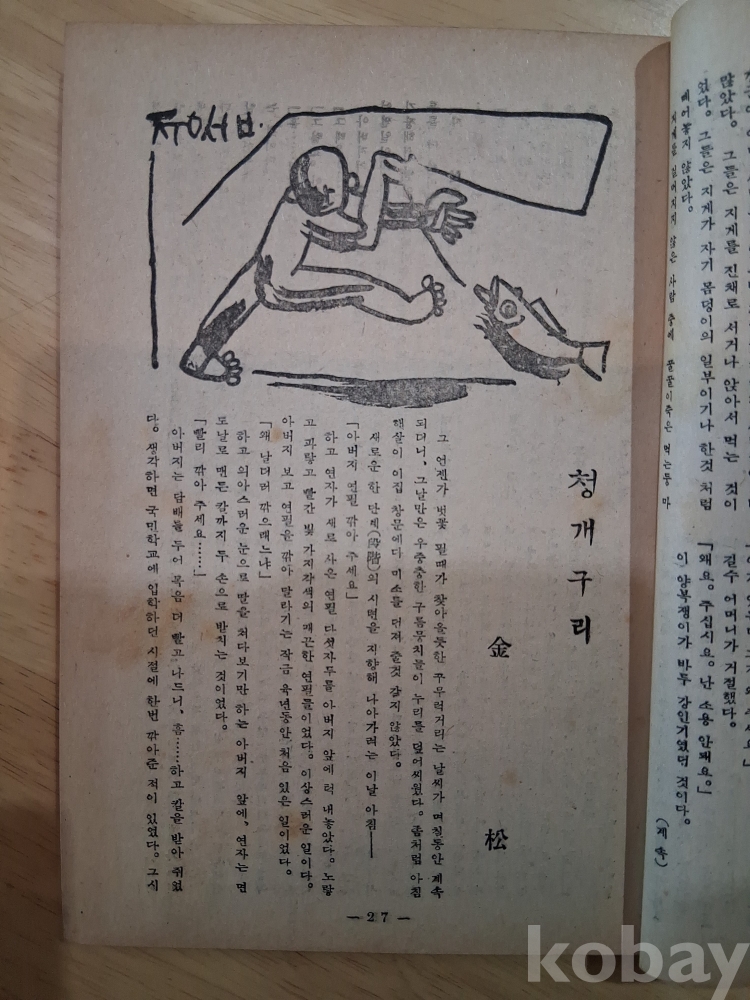 않았다. 그들은 지게를 진채로 서거나 앉아서 먹는 것이
었다. 그들은 지게가 자기 몸덩이의 일부이기나 한것 처럼
떼어놓지 않았다.
지게를 짊어지지 않은 사람 중에 꿀꿀이죽은 먹는
길수 어머니가 거절했다.
「왜요. 주십시요. 난 소용 안돼요.」
이 양복쟁이가 바두 강인기였던 것이다.
(계속)
청개구리
金松
그 언젠가 벗꽃 필때가 찾아올듯한 꾸무럭거리는 날씨가 며칠동안 계속
되더니, 그날만은 우중충한 구름뭉치들이 누리를 덮어씨웠다. 좀처럼 아침
햇살이 이집 창문에다 미소를 던져 줄것 같지 않았다.
새로운 한 단계(段階)의 시련을 지향해 나아가려는 이날 아침──
「아버지 연필 깎아 주세요」
하고 연자가 새로 사온 연필 다섯자루를 아버지 앞에 턱 내놓았다. 노랗
고 파랗고 빨간 빛 가지각색의 매끈한 연필들이었다. 이상스러운 일이다.
아버지 보고 연필을 깎아 달라기는 작금 육년동안 처음 있은 일이었다.
「왜 날더러 깎으래느냐」
하고 의아스러운 눈으로 딸을 쳐다보기만 하는 아버지 앞에, 연자는 면
도날로 맨든 칼까지 두 손으로 받치는 것이었다.
「빨리 깎아 주세요……」
아버지는 담배를 두어 목음 더 빨고 나드니, 흠……하고 칼을 받아 쥐었
다. 생각하면 국민학교에 입학하던 시절에 한번 깎아준 적이 있었다. 그시
— 27 —
kobay